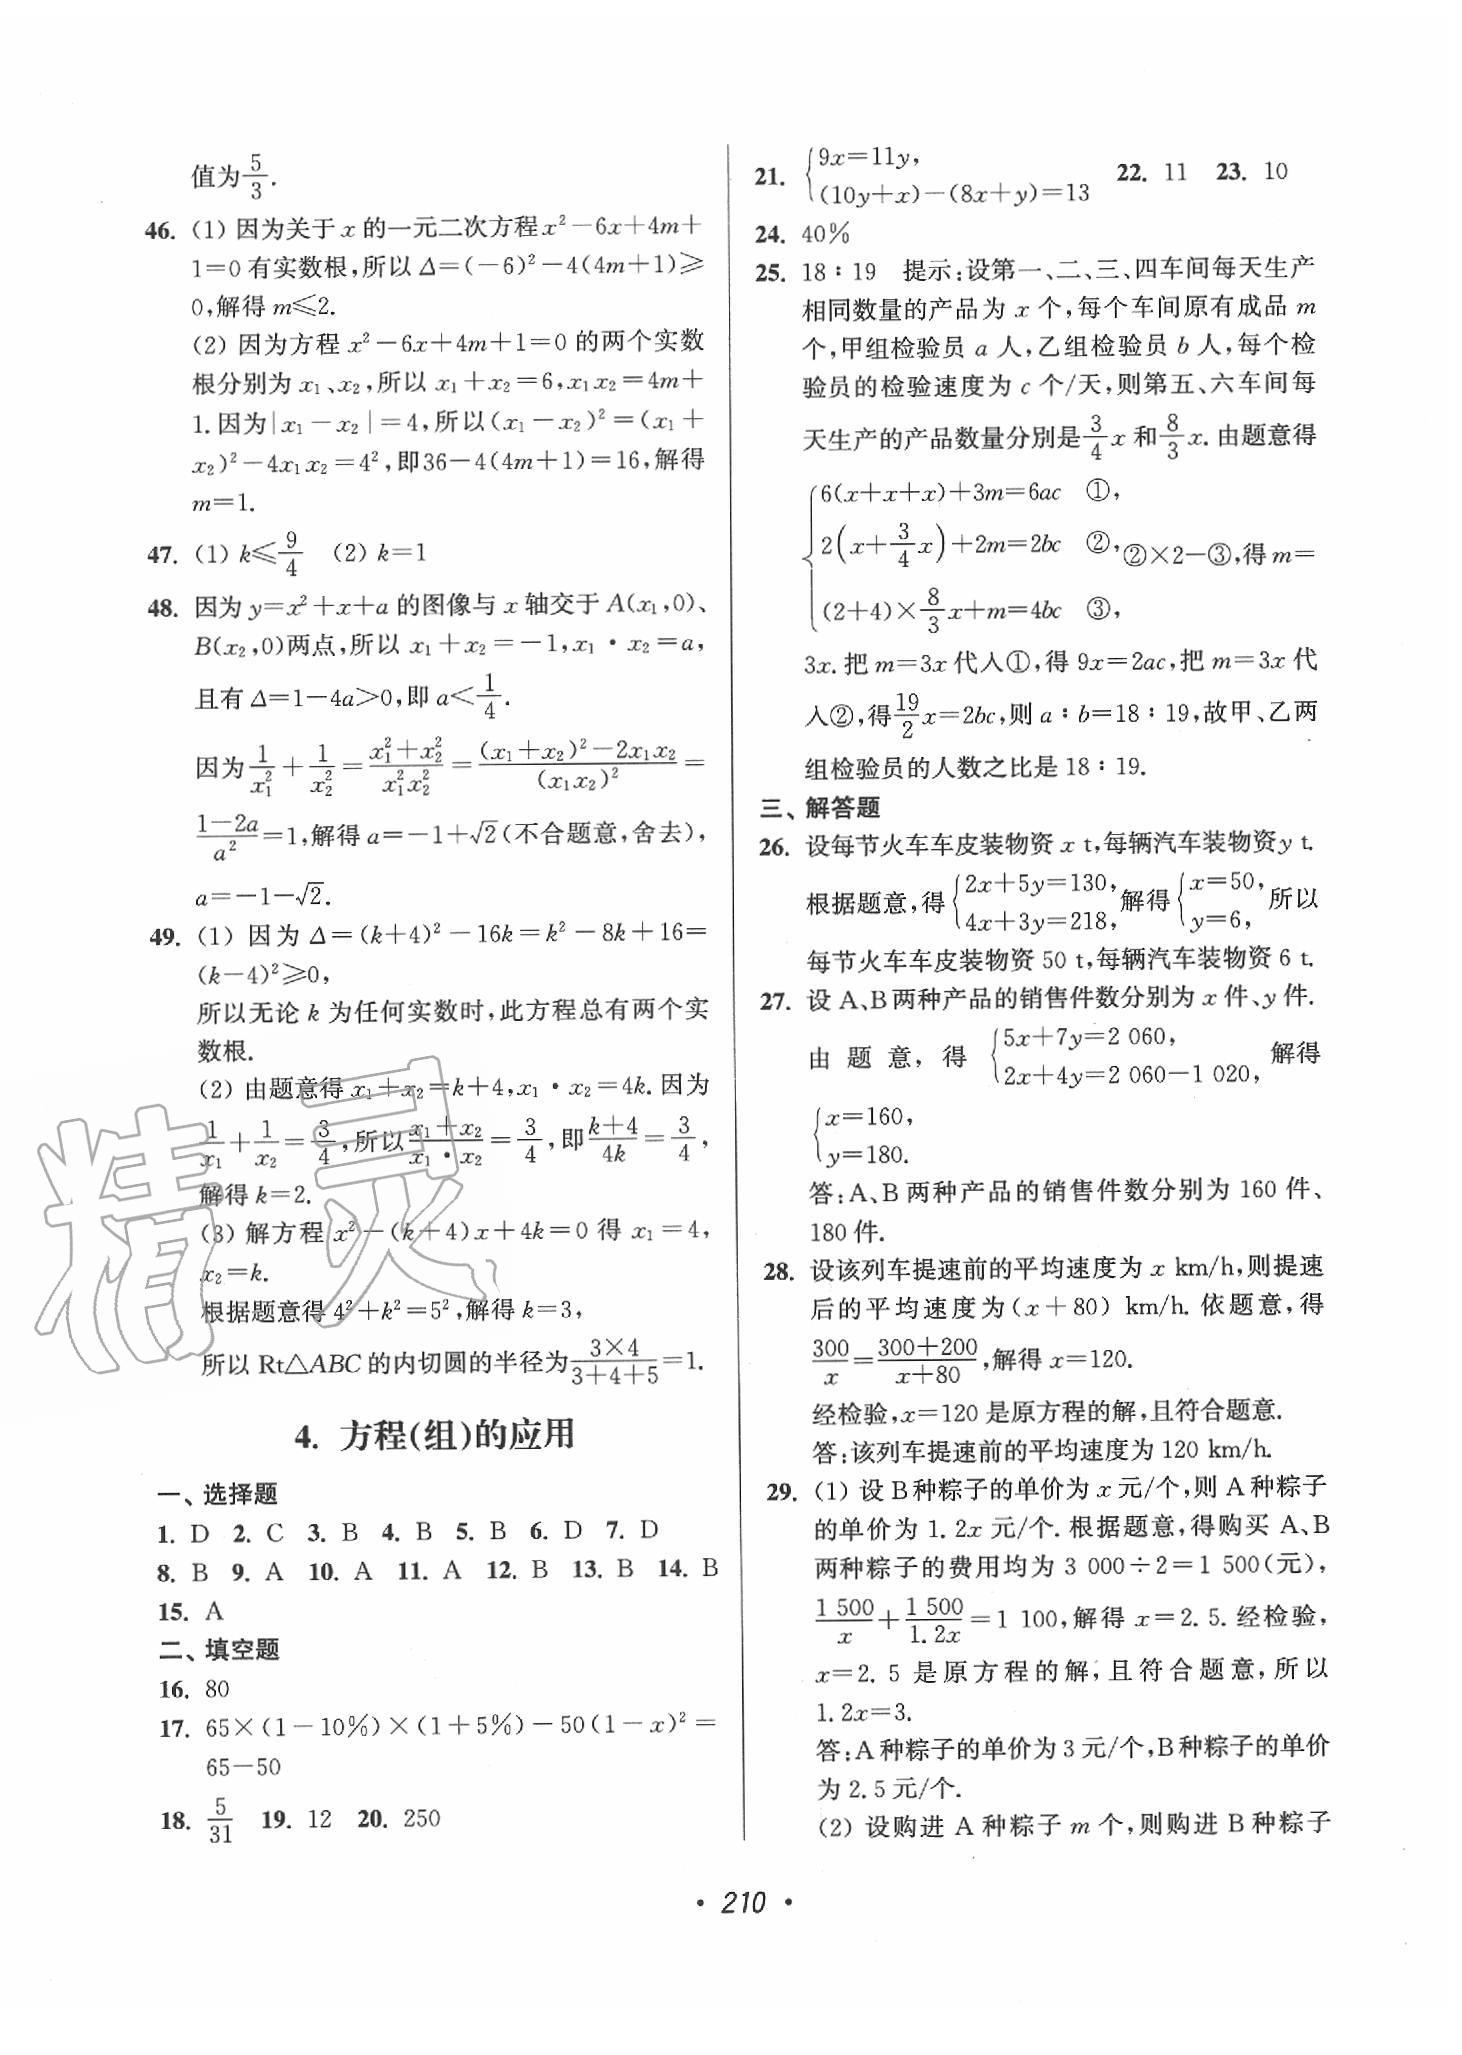 值为5/3.
46. (1) 因为关于 x 的一元二次方程 x²－6x＋4m＋
1＝0 有实数根,所以 Δ＝(－6)²－4(4m＋1)≥
0,解得 m≤2.
(2) 因为方程 x²－6x＋4m＋1＝0 的两个实数
根分别为 x₁、x₂,所以 x₁＋x₂＝6,x₁x₂＝4m＋
1.因为|x₁－x₂|＝4,所以(x₁－x₂)²＝(x₁＋
x₂)²－4x₁x₂＝4²,即36－4(4m＋1)＝16,解得
m＝1.
47. (1) k≤9/4 (2) k＝1
48. 因为 y＝x²＋x＋a 的图像与 x 轴交于 A(x₁,0)、
B(x₂,0)两点,所以 x₁＋x₂＝－1,x₁·x₂＝a,
且有 Δ＝1－4a＞0,即 a＜1/4.
因为1/x₁²＋1/x₂²＝(x₁²＋x₂²)/(x₁²x₂²)＝((x₁＋x₂)²－2x₁x₂)/(x₁x₂)²＝
(1－2a)/a²＝1,解得 a＝－1＋√2(不合题意,舍去),
a＝－1－√2.
49. (1) 因为 Δ＝(k＋4)²－16k＝k²－8k＋16＝
(k－4)²≥0,
所以无论 k 为任何实数时,此方程总有两个实
数根.
(2) 由题意得 x₁＋x₂＝k＋4,x₁·x₂＝4k.因为
1/x₁＋1/x₂＝3/4,所以(x₁＋x₂)/(x₁·x₂)＝3/4,即(k＋4)/4k＝3/4,
解得 k＝2.
(3) 解方程 x²－(k＋4)x＋4k＝0 得 x₁＝4,
x₂＝k.
根据题意得 4²＋k²＝5²,解得 k＝3,
所以 Rt△ABC 的内切圆的半径为(3×4)/(3＋4＋5)＝1.
4. 方程(组)的应用
一、选择题
1. D 2. C 3. B 4. B 5. B 6. D 7. D
8. B 9. A 10. A 11. A 12. B 13. B 14. B
15. A
二、填空题
16. 80
17. 65×(1－10%)×(1＋5%)－50(1－x)²＝
65－50
18. 5/31 19. 12 20. 250
21. {9x＝11y, (10y＋x)－(8x＋y)＝13 22. 11 23. 10
24. 40%
25. 18∶19 提示:设第一、二、三、四车间每天生产
相同数量的产品为 x 个,每个车间原有成品 m
个,甲组检验员 a 人,乙组检验员 b 人,每个检
验员的检验速度为 c 个/天,则第五、六车间每
天生产的产品数量分别是3/4 x 和8/3 x.由题意得
{6(x＋x＋x)＋3m＝6ac ①,
2(x＋3/4 x)＋2m＝2bc ②,
(2＋4)×8/3 x＋m＝4bc ③, ②×2－③,得 m＝
3x.把 m＝3x 代入①,得 9x＝2ac,把 m＝3x 代
入②,得19/2 x＝2bc,则 a∶b＝18∶19,故甲、乙两
组检验员的人数之比是 18∶19.
三、解答题
26. 设每节火车车皮装物资 x t,每辆汽车装物资y t.
根据题意,得{2x＋5y＝130, 4x＋3y＝218, 解得{x＝50, y＝6, 所以
每节火车车皮装物资 50 t,每辆汽车装物资 6 t.
27. 设 A、B 两种产品的销售件数分别为 x 件、y 件.
由题意,得 {5x＋7y＝2 060, 2x＋4y＝2 060－1 020, 解得
{x＝160,
y＝180.
答:A、B 两种产品的销售件数分别为 160 件、
180 件.
28. 设该列车提速前的平均速度为 x km/h,则提速
后的平均速度为(x＋80) km/h.依题意,得
300/x＝(300＋200)/(x＋80),解得 x＝120.
经检验,x＝120 是原方程的解,且符合题意.
答:该列车提速前的平均速度为 120 km/h.
29. (1) 设 B 种粽子的单价为 x 元/个,则 A 种粽子
的单价为 1.2x 元/个.根据题意,得购买 A、B
两种粽子的费用均为 3 000÷2＝1 500(元),
1 500/x＋1 500/1.2x＝1 100,解得 x＝2.5.经检验,
x＝2.5 是原方程的解,且符合题意,所以
1.2x＝3.
答:A 种粽子的单价为 3 元/个,B 种粽子的单价
为 2.5 元/个.
(2) 设购进 A 种粽子 m 个,则购进 B 种粽子
· 210 ·
精灵